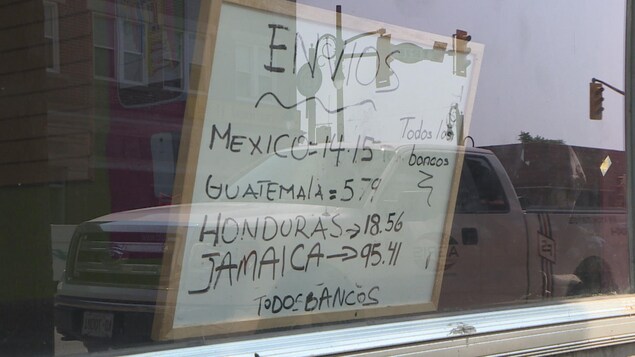 ENVIOS
MEXICO=14.15
Todos los
bancos
GUATEMALA=5.79
HONDURAS→18.56
JAMAICA→95.41
TODOS BANCOS